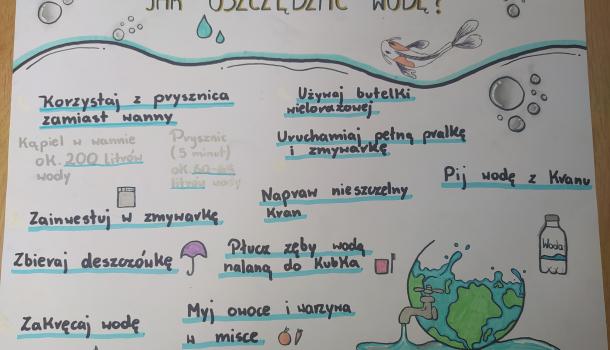 JAK OSZCZĘDZAĆ WODĘ?
Korzystaj z prysznica
zamiast wanny
Kąpiel w wannie
ok. 200 litrów
wody
Prysznic
(5 minut)
ok.
litrów wody
Zainwestuj w zmywarkę
Zbieraj deszczówkę
Zakręcaj wodę
Używaj butelki
wielorazowej
Uruchamiaj pełną pralkę
i zmywarkę
Napraw nieszczelny
kran
Płucz zęby wodą
nalaną do kubka
Myj owoce i warzywa
w misce
Pij wodę z kranu
Woda